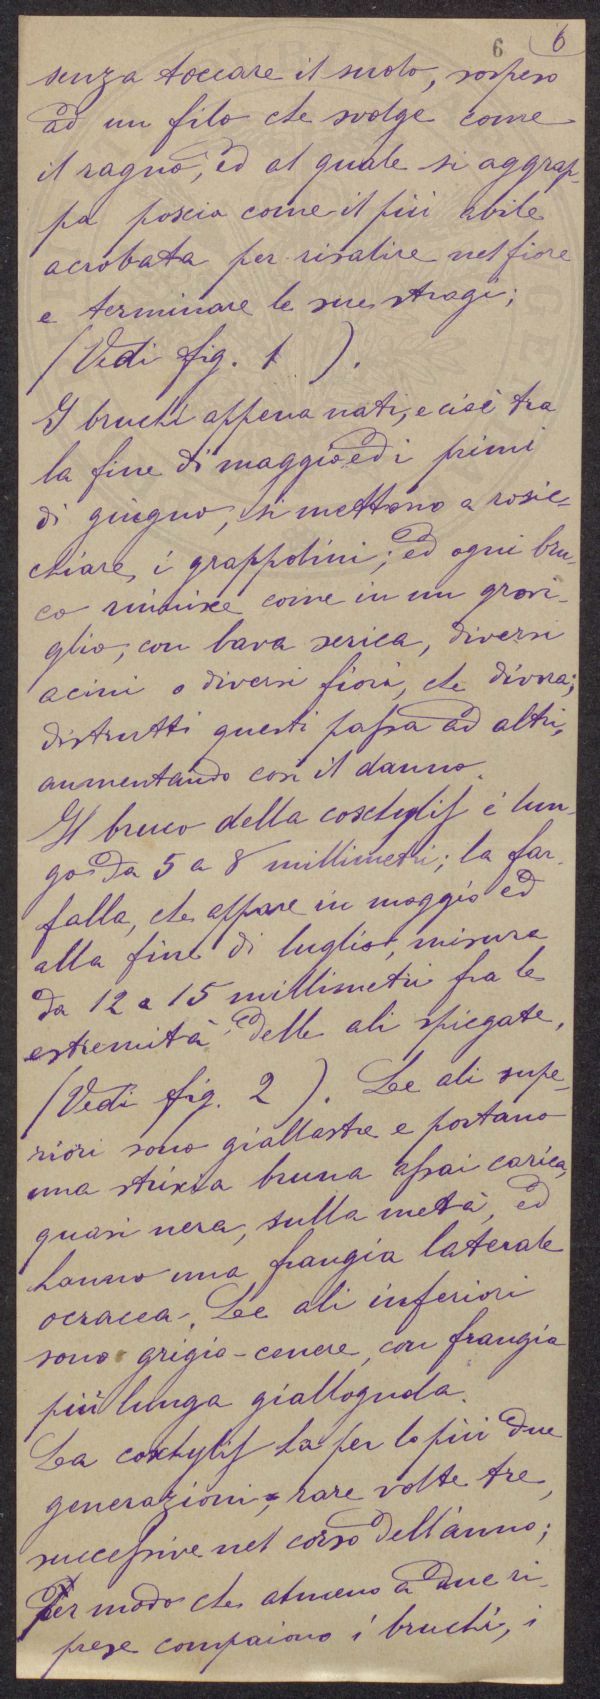 6 6
senza toccare il suolo, sospeso
ad un filo che svolge come
il ragno, ed al quale si aggrap-
pa poscia come il più abile
acrobata per risalire nel fiore
e terminare le sue stragi;
(Vedi fig. 1 ).
I bruchi appena nati, e cioè tra
la fine di maggio ed i primi
di giugno, si mettono a rosic-
chiare i grappolini; ed ogni bru-
co riunisce come in un grovi-
glio, con bava serica, diversi
acini o diversi fiori, che divora;
distrutti questi passa ad altri,
aumentando così il danno.
Il bruco della cochylis è lun-
go da 5 a 8 millimetri; la far-
falla, che appare in maggio ed
alla fine di luglio, misura
da 12 a 15 millimetri fra le
estremità delle ali spiegate.
(Vedi fig. 2 ). Le ali supe-
riori sono giallastre e portano
una striscia bruna assai carica,
quasi nera, sulla metà, ed
hanno una frangia laterale
ocracea. Le ali inferiori
sono grigio-cenere, con frangia
più lunga giallognola.
La cochylis ha per lo più due
generazioni, rare volte tre,
successive nel corso dell'anno;
Per modo che almeno a due ri-
prese compaiono i bruchi, i